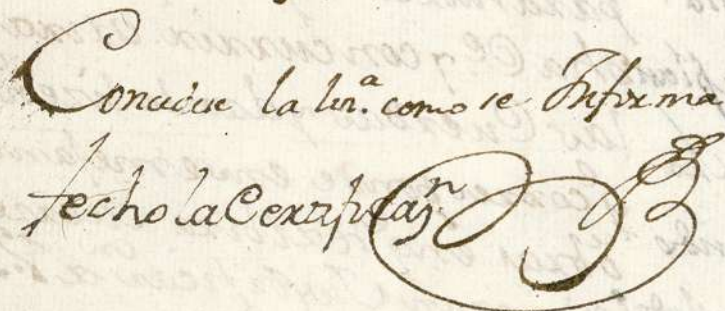 Concedese la lizn.ª como se Informa
fecho la Certificaz.n